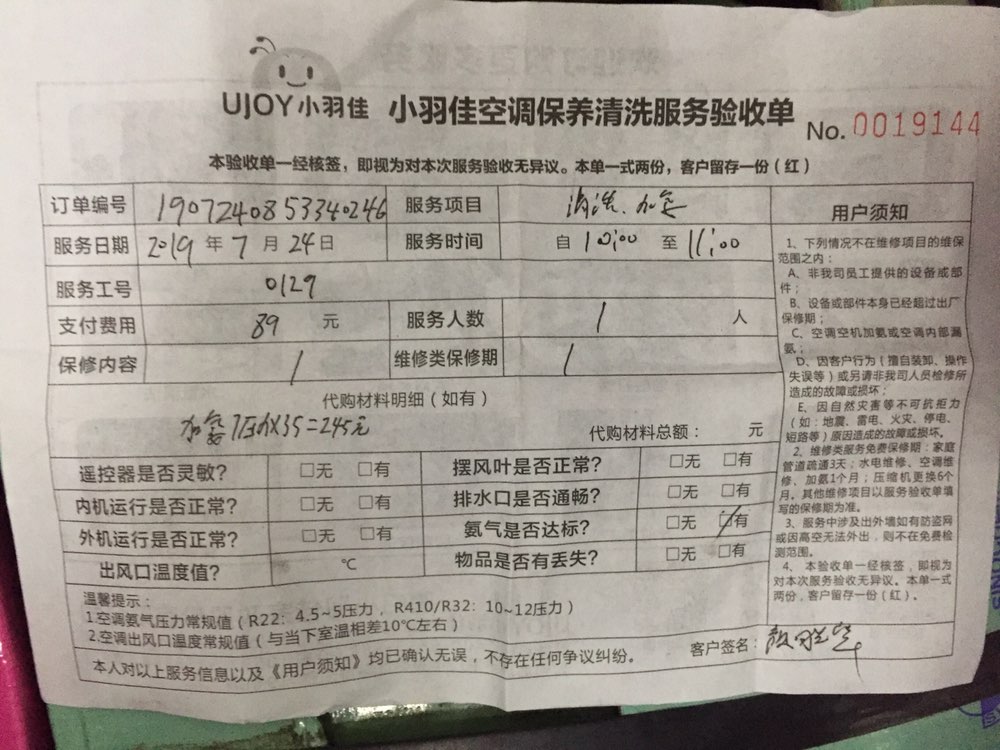 UJOY小羽佳 小羽佳空调保养清洗服务验收单 No. 0019144
本验收单一经核签，即视为对本次服务验收无异议。本单一式两份，客户留存一份（红）
订单编号 1907240853340246 服务项目 清洗、加氨
服务日期 2019年7月24日 服务时间 自10:00至11:00
服务工号 0129
支付费用 89 元 服务人数 1 人
保修内容 / 维修类保修期 /
代购材料明细（如有）
加氨7压力X35=245元 代购材料总额： 元
遥控器是否灵敏？ □无 □有 摆风叶是否正常？ □无 □有
内机运行是否正常？ □无 □有 排水口是否通畅？ □无 □有
外机运行是否正常？ □无 □有 氨气是否达标？ □无 ☑有
出风口温度值？ ℃ 物品是否有丢失？ □无 □有
温馨提示：
1.空调氨气压力常规值（R22：4.5~5压力，R410/R32：10~12压力）
2.空调出风口温度常规值（与当下室温相差10℃左右）
本人对以上服务信息以及《用户须知》均已确认无误，不存在任何争议纠纷。 客户签名：
用户须知
1、下列情况不在维修项目的维保
范围之内：
A、非我司员工提供的设备或部
件；
B、设备或部件本身已经超过出厂
保修期；
C、空调空机加氨或空调内部漏
氨；
D、因客户行为（擅自装卸、操作
失误等）或另请非我司人员检修所
造成的故障或损坏；
E、因自然灾害等不可抗拒为
（如：地震、雷电、火灾、停电、
短路等）原因造成的故障或损坏。
2、维修类服务免费保修期：家庭
管道疏通3天；水电维修、空调维
修、加氨1个月；压缩机更换6个
月。其他维修项目以服务验收单填
写的保修期为准。
3、服务中涉及出外墙如有防盗网
或因高空无法外出，则不在免费检
测范围。
4、本验收单一经核签，即视为
对本次服务验收无异议。本单一式
两份，客户留存一份（红）。